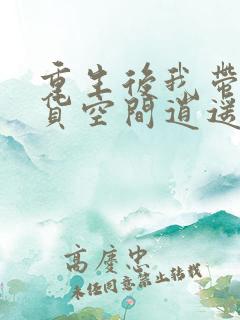 重生後我帶
貨空間逍遙
高慶忠
未經同意禁止轉載